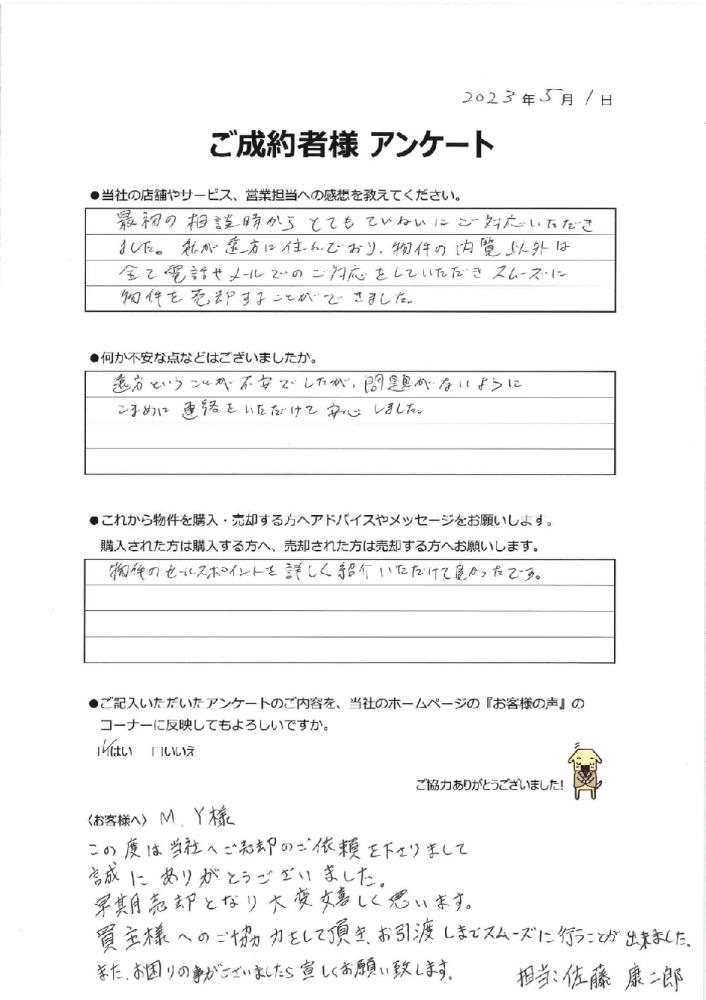 2023年5月1日
ご成約者様 アンケート
●当社の店舗やサービス、営業担当への感想を教えてください。
最初の相談時からとてもていねいにご対応いただき
ました。私が遠方に住んでおり、物件の内覧以外は
全て電話やメールでのご対応をしていただきスムーズに
物件を売却することができました。
●何か不安な点などはございましたか。
遠方ということが不安でしたが、問題がないように
こまめに連絡をいただけて安心しました。
●これから物件を購入・売却する方へアドバイスやメッセージをお願いします。
購入された方は購入する方へ、売却された方は売却する方へお願いします。
物件のセールスポイントを詳しく紹介いただけて良かったです。
●ご記入いただいたアンケートのご内容を、当社のホームページの『お客様の声』の
コーナーに反映してもよろしいですか。
☑はい □いいえ
ご協力ありがとうございました!
〈お客様へ〉 M.Y様
この度は当社へご売却のご依頼を下さりまして
誠にありがとうございました。
早期売却となり大変嬉しく思います。
買主様へのご協力をして頂き、お引渡しまでスムーズに行うことが出来ました。
また、お困りの事がございましたら宜しくお願い致します。
担当:佐藤 康二郎